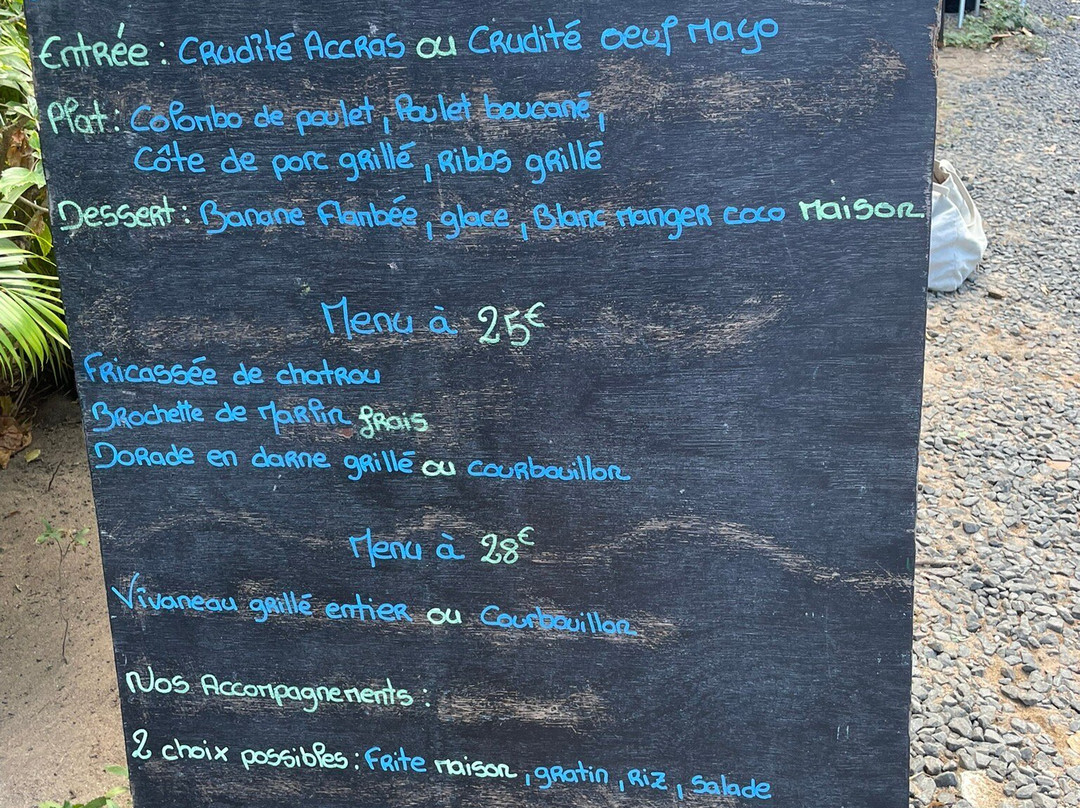 Entrée : Crudîté Accras ou Crudité oeuf Mayo
Plat : Colombo de poulet, Poulet boucané,
Côte de porc grillé, Ribbs grillé
Dessert : Banane Flambée, glace, Blanc manger coco Maison
Menu à 25€
Fricassée de chatrou
Brochette de Marlin frais
Dorade en darne grillé ou courbouillon
Menu à 28€
Vivaneau grillé entier ou Courbouillon
Nos Accompagnements :
2 choix possibles : Frite maison, gratin, Riz, salade